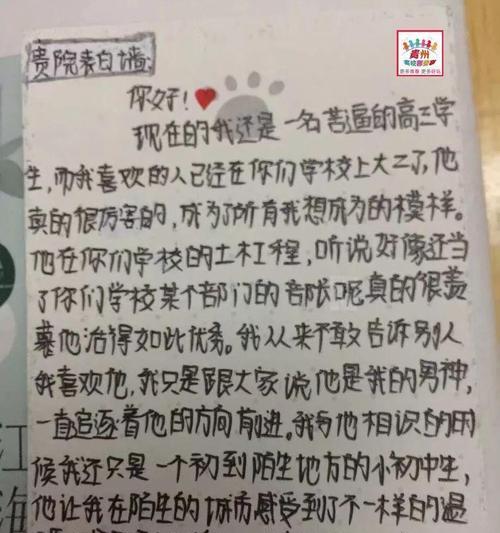 贵州
贵院表白墙
你好!
现在的我还是一名苦逼的高三学
生,而我喜欢的人已经在你们学校上大二了,他
真的很厉害的,成为了所有我想成为的模样。
他在你们学校的土木工程,听说好像还当
了你们学校某个部门的部长呢真的很羡
慕他活得如此优秀。我从来不敢告诉别人
我喜欢他,我只是跟大家说他是我的男神,
一直追逐着他的方向前进。我与他相识的时
候我还只是一个初到陌生地方的小初中生,
他让我在陌生的城市感受到了不一样的温
江
海